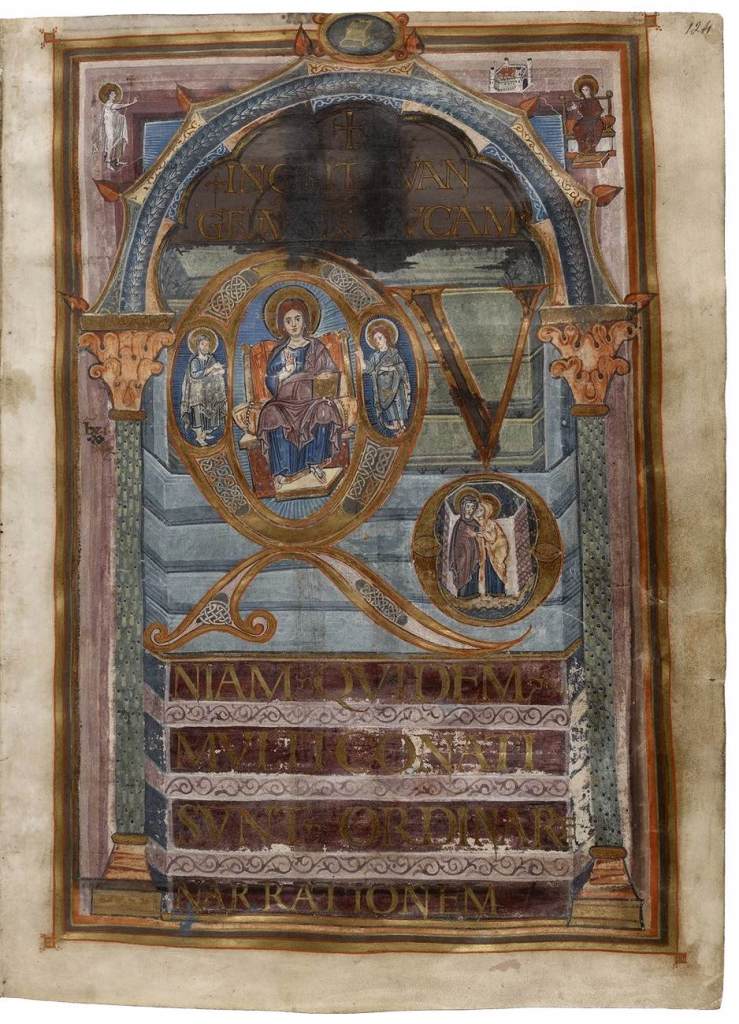 124
+
INCIPIT EVAN
LVCAM
QVO
NIAM QVIDEM
MVLTI CONATI
SVNT ORDINARE
NARRATIONEM